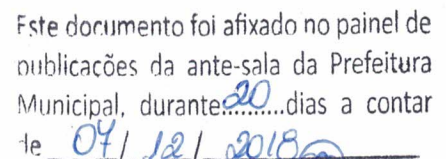 Este documento foi afixado no painel de
publicações da ante-sala da Prefeitura
Municipal, durante...20...dias a contar
de 07/ 12/ 2018